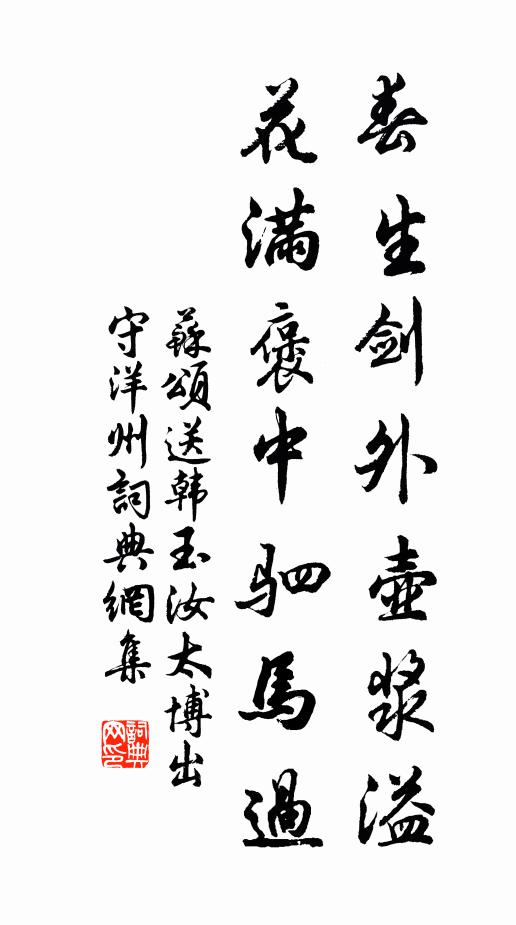 春生剑外壶浆溢
花满褒中驷馬過
蘇頌送韩玉汝太博出
守洋州詞典網集
詞典网印